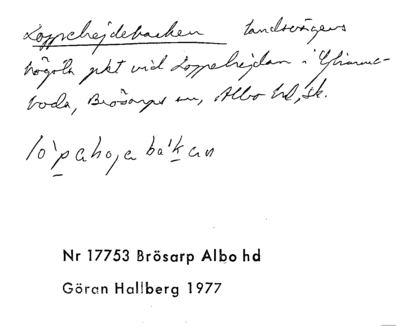 Loppehejdebacken landsvägens
högsta pkt vid Loppehejdan i
boda, Brösarps sn, Albo hd, Sk.
Nr 17753 Brösarp Albo hd
Göran Hallberg 1977